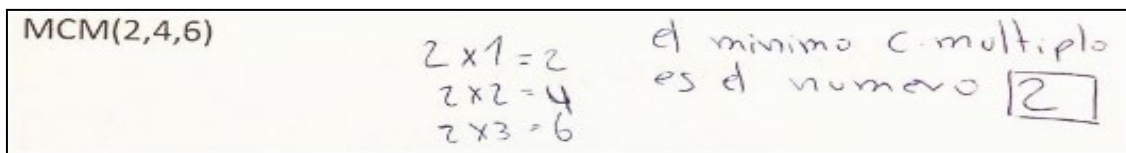 MCM(2,4,6)
2 x 1 = 2
2 x 2 = 4
2 x 3 = 6
el minimo c. multiplo
es el numero 2